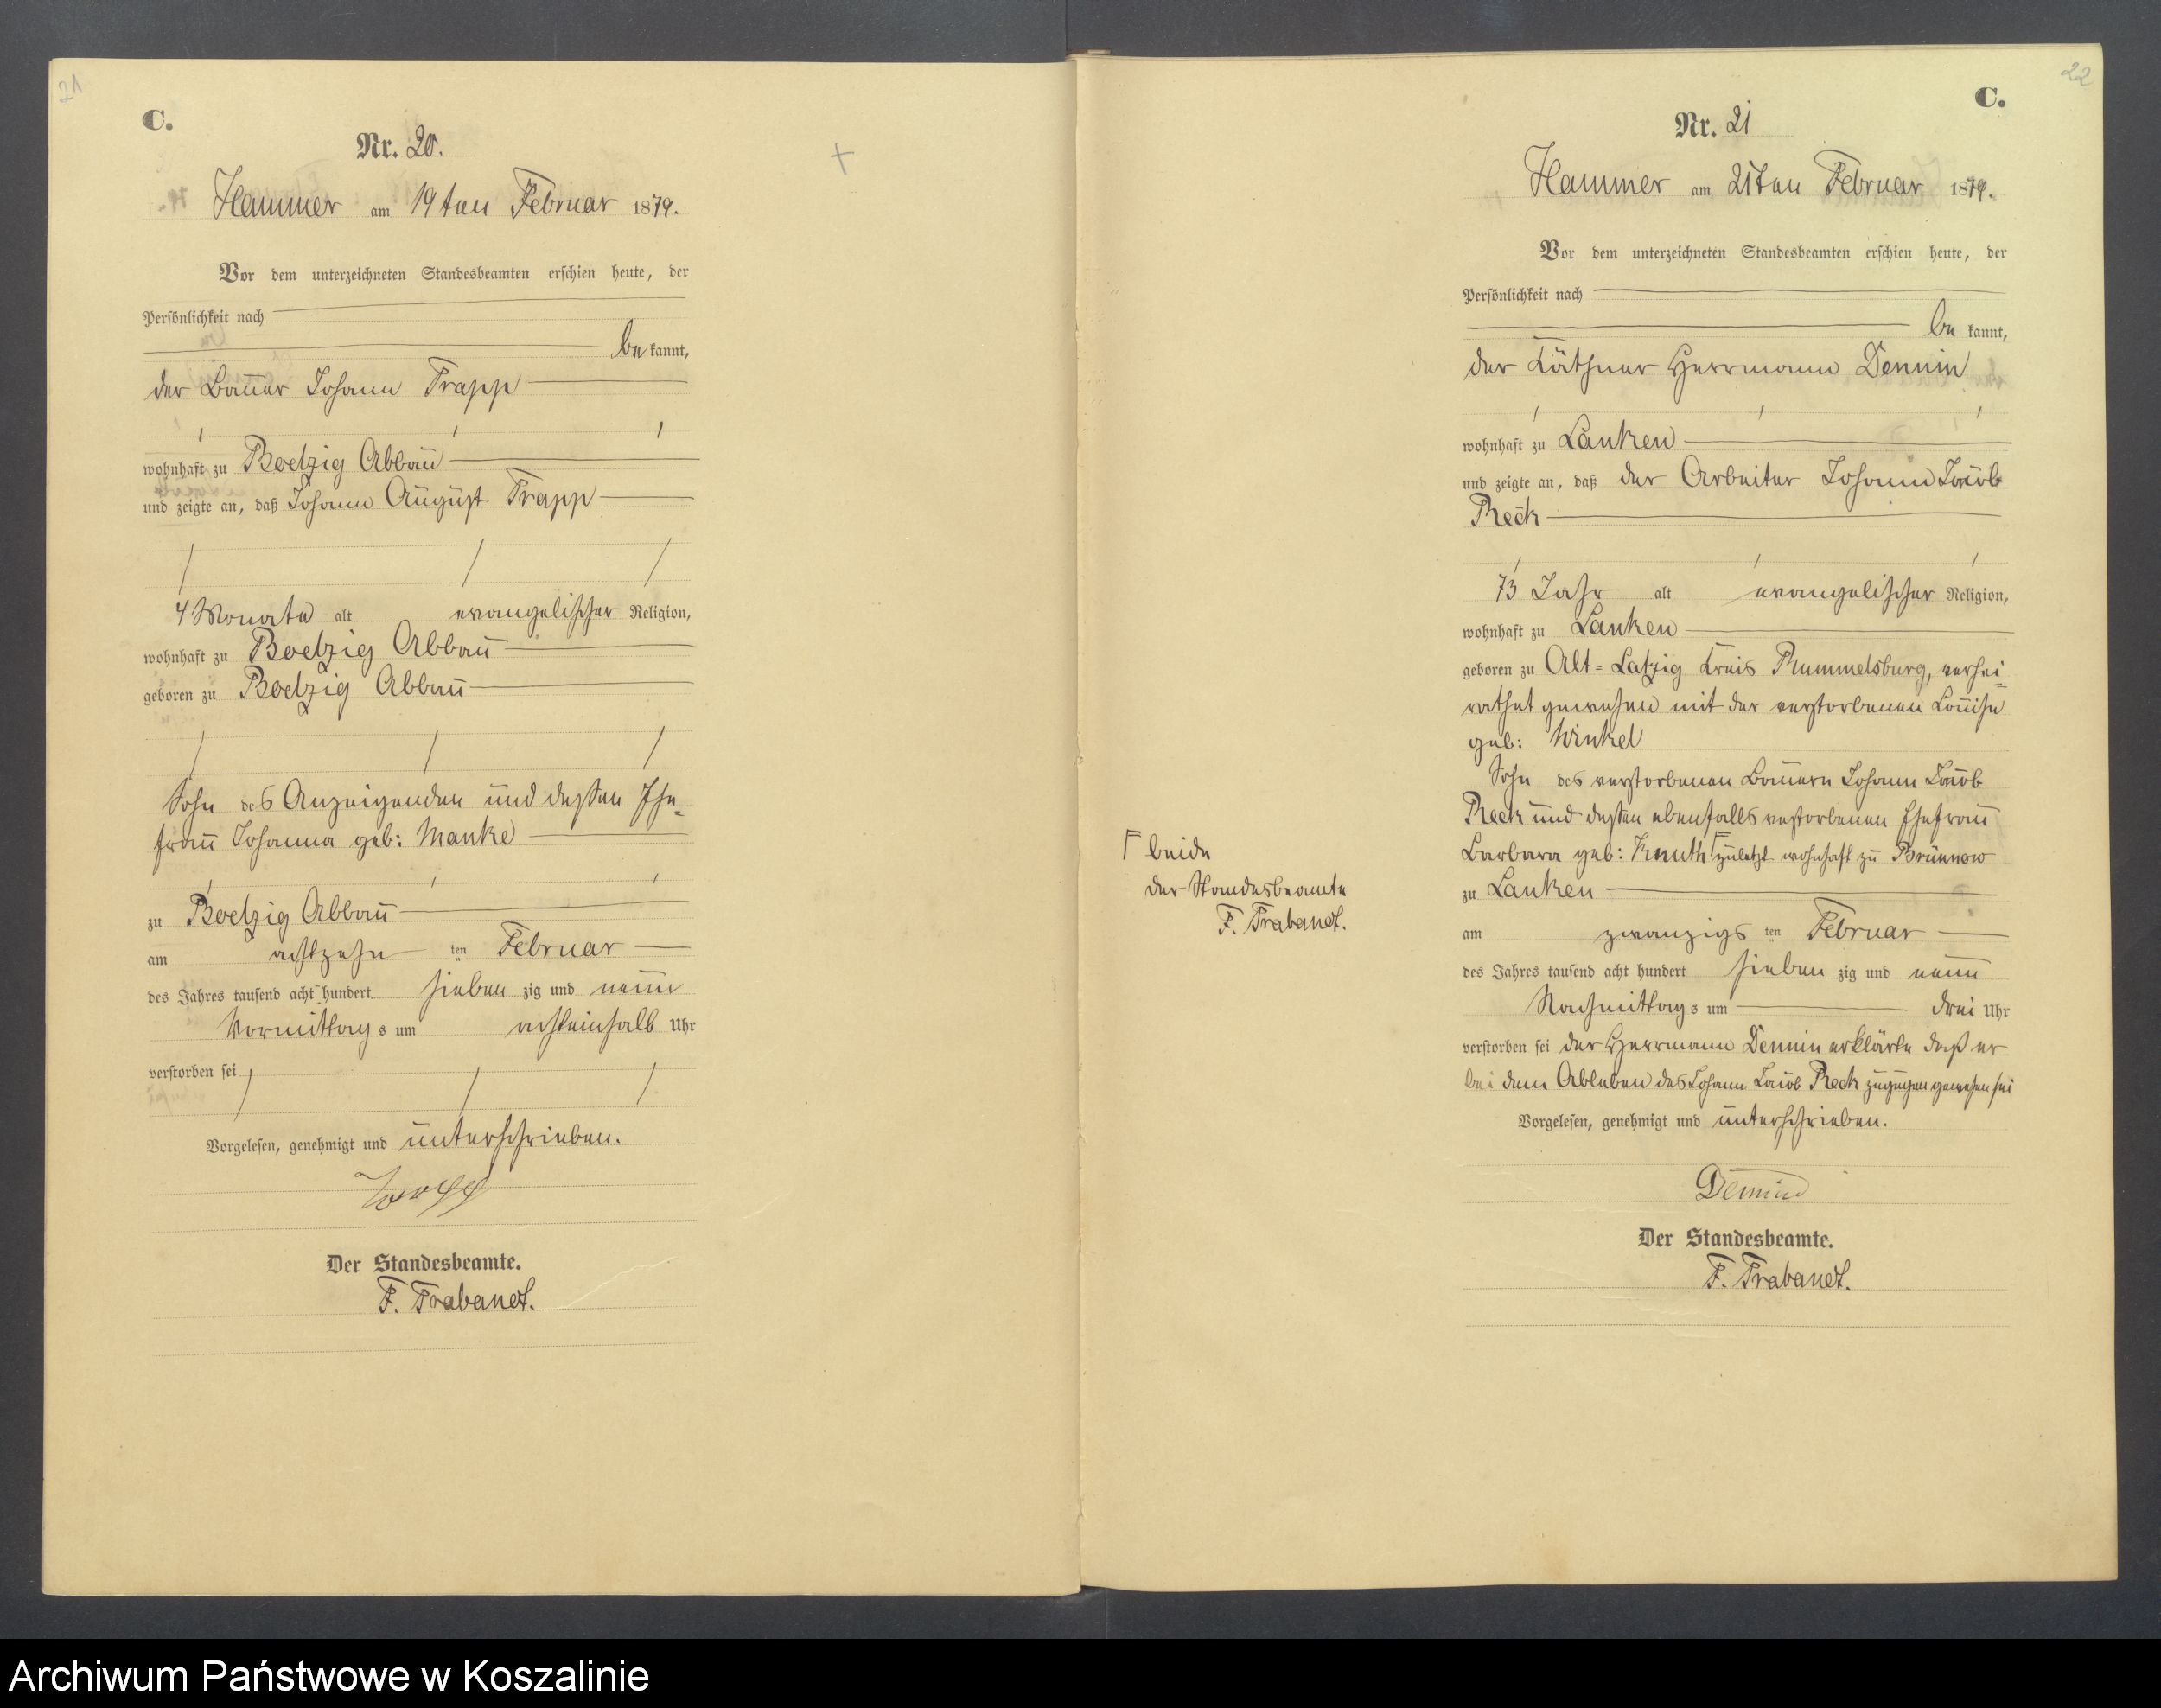 21
C.
Nr. 20.
Hammer am 19ten Februar 1879.
Vor dem unterzeichneten Standesbeamten erschien heute, der
Persönlichkeit nach
be kannt,
der Bauer Johann Trapp
wohnhaft zu Roetzig Abbau
und zeigte an, daß Johann August Trapp
4 Monate alt evangelischer Religion,
wohnhaft zu Roetzig Abbau
geboren zu Roetzig Abbau
Sohn des Anzeigenden und dessen Ehe=
frau Johanna geb: Manke
zu Roetzig Abbau
am achtzehn ten Februar
des Jahres tausend acht hundert sieben zig und neun
Vormittags um achteinhalb Uhr
verstorben sei
Vorgelesen, genehmigt und unterschrieben.
Trapp
Der Standesbeamte.
F. Trabandt.
22
C.
Nr. 21
Hammer am 21ten Februar 1879.
Vor dem unterzeichneten Standesbeamten erschien heute, der
Persönlichkeit nach
be kannt,
der Käthner Herrmann Demin
wohnhaft zu Lanken
und zeigte an, daß der Arbeiter Johann Jacob
Reck
73 Jahr alt evangelischer Religion,
wohnhaft zu Lanken
geboren zu Alt=Latzig Kreis Rummelsburg, verhei=
rathet gewesen mit der verstorbenen Louise
geb: Winkel
Sohn des verstorbenen Bauern Johann Jacob
Reck und dessen ebenfalls verstorbenen Ehefrau
Barbara geb: Knuth ⌈zuletzt wohnhaft zu Brünnow
zu Lanken
am zwanzigs ten Februar
des Jahres tausend acht hundert sieben zig und neun
Nachmittags um drei Uhr
verstorben sei der Herrmann Demin erklärte daß er
bei dem Ableben des Johann Jacob Reck zugegen gewesen sei
Vorgelesen, genehmigt und unterschrieben.
Demin
Der Standesbeamte.
F. Trabandt.
⌈ beide
der Standesbeamte
F. Trabandt.
Archiwum Państwowe w Koszalinie